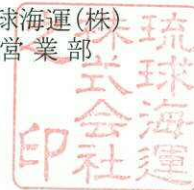 球海運(株)
営業部
琉球海運
株式会社
印